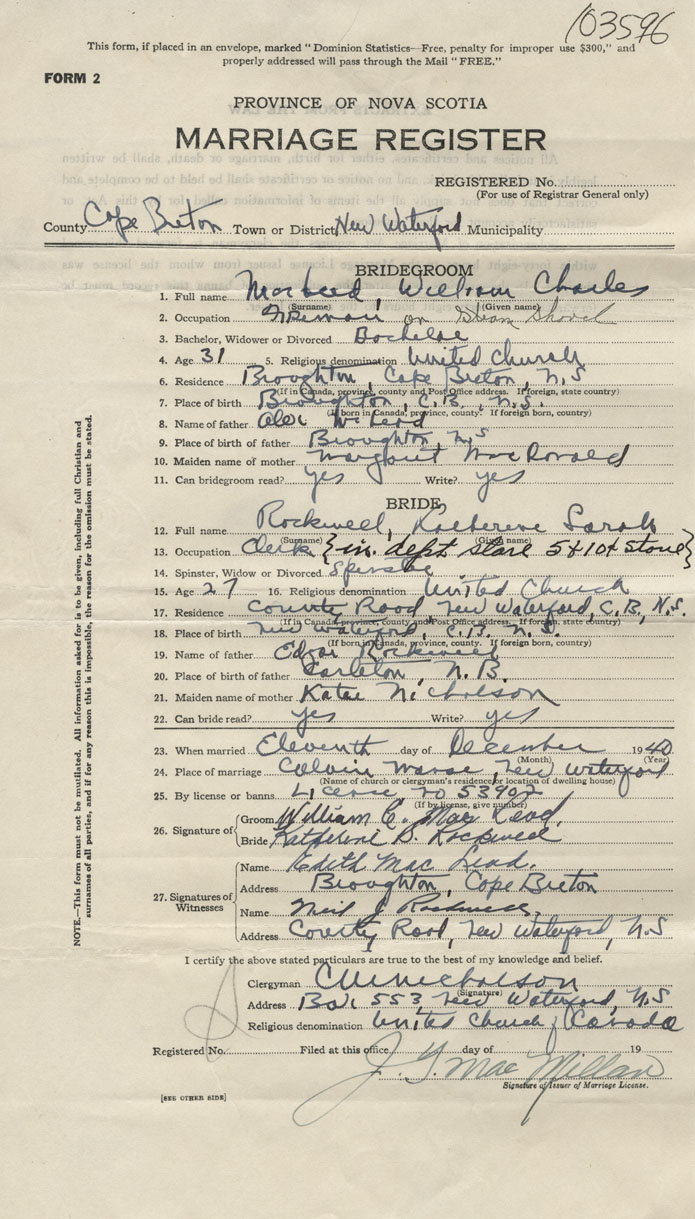 103596
This form, if placed in an envelope, marked "Dominion Statistics—Free, penalty for improper use $300," and
properly addressed will pass through the Mail "FREE."
FORM 2
PROVINCE OF NOVA SCOTIA
MARRIAGE REGISTER
REGISTERED No.
(For use of Registrar General only)
County Cape Breton Town or District New Waterford Municipality
BRIDEGROOM
1. Full name MacLeod, William Charles
(Surname) (Given name)
2. Occupation Fireman on Steam Shovel
3. Bachelor, Widower or Divorced Bachelor
4. Age 31 5. Religious denomination United Church
6. Residence Broughton, Cape Breton, N.S
(If in Canada, province, county and Post Office address. If foreign, state country)
7. Place of birth Broughton, C.B., N.S.
(If born in Canada, province, county. If foreign born, country)
8. Name of father Alex McLeod
9. Place of birth of father Broughton, N.S
10. Maiden name of mother Margaret MacDonald
11. Can bridegroom read? yes Write? yes
BRIDE
12. Full name Rockwell, Katherine Sarah
(Surname) (Given name)
13. Occupation Clerk {in. dept store 5 & 10¢ store}
14. Spinster, Widow or Divorced Spinster
15. Age 27 16. Religious denomination United Church
17. Residence County Road, New Waterford, C.B, N.S.
(If in Canada province, county and Post Office address. If foreign, state country)
18. Place of birth New Waterford, C.B. N.S.
(If born in Canada, province, county. If foreign born, country)
19. Name of father Edgar Rockwell
20. Place of birth of father Carleton, N.B.
21. Maiden name of mother Katie Nicholson
22. Can bride read? yes Write? yes
23. When married Eleventh day of December 1940
(Month) (Year)
24. Place of marriage Calvin Manse, New Waterford
(Name of church or clergyman's residence or location of dwelling house)
25. By license or banns License No 53902
(If by license, give number)
26. Signature of
Groom William C. MacLeod.
Bride Katherine B. Rockwell
27. Signatures of Witnesses
Name Edith MacLeod.
Address Broughton, Cape Breton
Name Neil J Rockwell,
Address County Road, New Waterford, N.S
I certify the above stated particulars are true to the best of my knowledge and belief.
Clergyman C M Nicholson
(Signature)
Address Box 553, New Waterford, N.S
Religious denomination United Church of Canada
Registered No. Filed at this office day of 19
J. Y. MacMillan
Signature of Issuer of Marriage License.
[SEE OTHER SIDE]
NOTE.—This form must not be mutilated. All information asked for is to be given, including full Christian and
surnames of all parties, and if for any reason this is impossible, the reason for the omission must be stated.